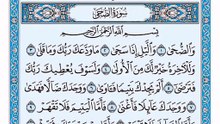 سُورَةُ الضُّحَى
بِسْمِ اللَّهِ الرَّحْمَٰنِ الرَّحِيمِ
وَالضُّحَىٰ ۝١ وَاللَّيْلِ إِذَا سَجَىٰ ۝٢ مَا وَدَّعَكَ رَبُّكَ وَمَا قَلَىٰ ۝٣
وَلَلْآخِرَةُ خَيْرٌ لَّكَ مِنَ الْأُولَىٰ ۝٤ وَلَسَوْفَ يُعْطِيكَ رَبُّكَ
فَتَرْضَىٰ ۝٥ أَلَمْ يَجِدْكَ يَتِيمًا فَآوَىٰ ۝٦ وَوَجَدَكَ ضَالًّا فَهَدَىٰ
۝٧ وَوَجَدَكَ عَائِلًا فَأَغْنَىٰ ۝٨ فَأَمَّا الْيَتِيمَ فَلَا تَقْهَرْ ۝٩